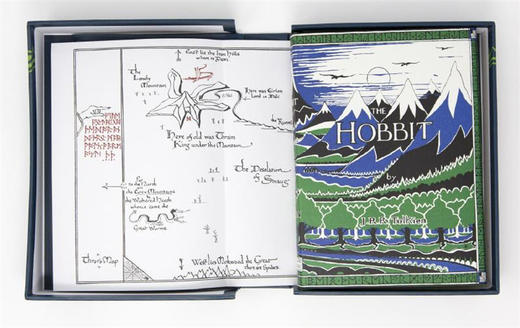 East lie the Iron Hills
where is Dain.
The
Lonely
Mountain
Here was Girion
Lord in Dale
the Running
Here of old was Thrain
King under the Mountain
The Desolation
of Smaug
Far
to the North
are the Grey Mountains &
the Withered Heath
whence came the
Great Worms
West lies Mirkwood the Great
there are Spiders.
Thror's Map
THE
HOBBIT
by
J.R.R. Tolkien